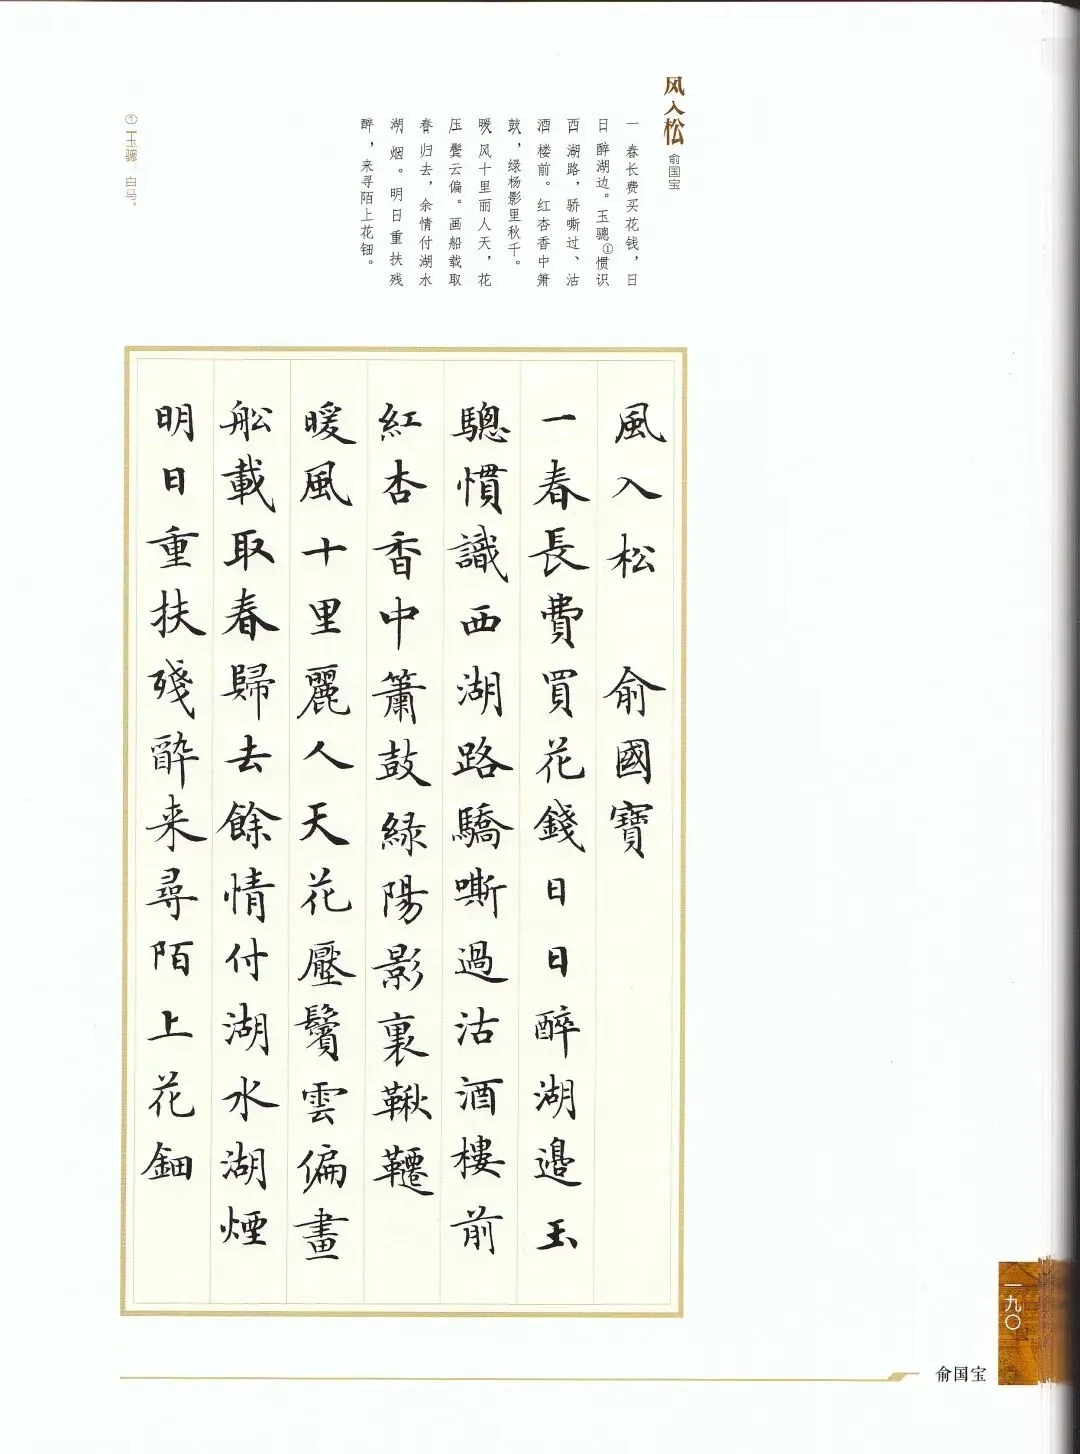 风入松
俞国宝
一春长费买花钱，日
日醉湖边。玉骢①惯识
西湖路，骄嘶过、沽
酒楼前。红杏香中箫
鼓，绿杨影里秋千。
暖风十里丽人天，花
压鬓云偏。画船载取
春归去，余情付湖水
湖烟。明日重扶残
醉，来寻陌上花钿。
①玉骢：白马。
風入松 俞國寶
一春長費買花錢日日醉湖邊玉
驄慣識西湖路驕嘶過沽酒樓前
紅杏香中簫鼓緑陽影裏鞦韆
暖風十里麗人天花壓鬢雲偏畫
舩載取春歸去餘情付湖水湖煙
明日重扶殘醉来尋陌上花鈿
一九〇
俞国宝